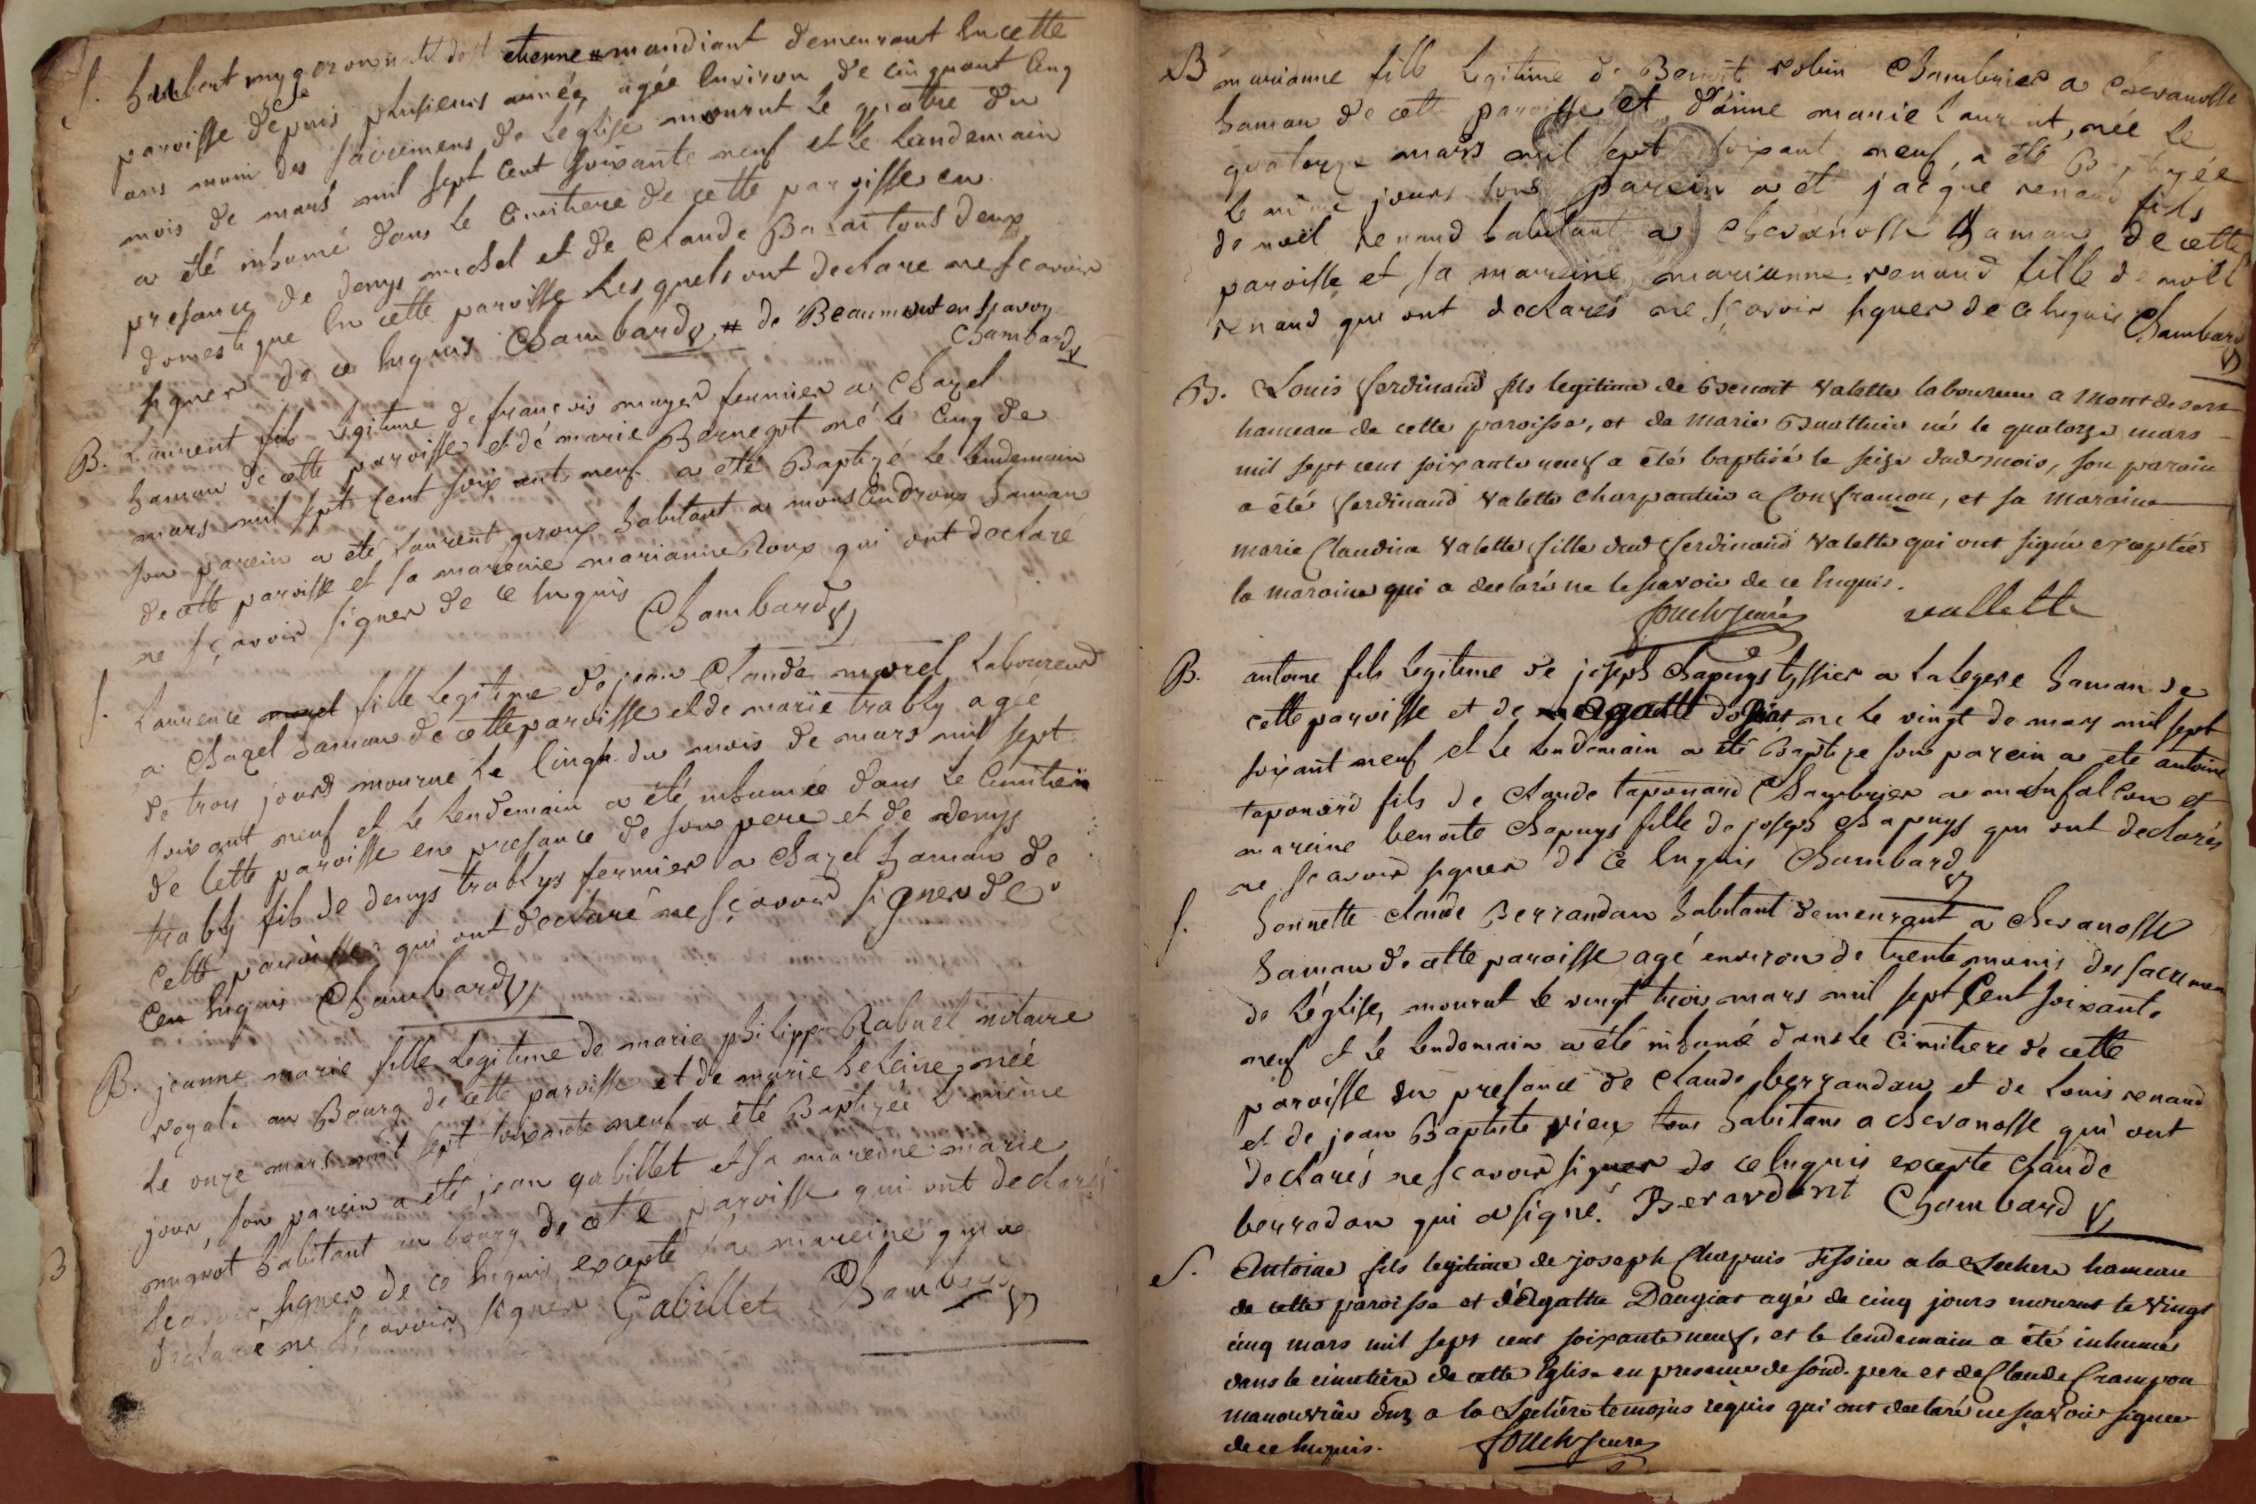 S. hubert mygeron etienne # mandiant demeurant en cette
paroisse depuis plusieurs année, agée environ de cinquant cinq
ans muni des sacremens de l'église mourut le quatre du
mois de mars mil sept cent soixante neuf et le landemain
a été inhumé dans le Cimitiere de cette paroisse en
presance de denys michel et de Claude tous deux
domestique en cette paroisse lesquels ont declare ne scavoir
signer de ce enquis Chambard # de Beaumont en scavoy
Chambard
B. Laurent fils legitime de françois mayer fermier a Chazel
hamau de cette paroisse et de marie Bernegot né le cinq de
mars mil sept cent soixante neuf a été Baptizé le lendemain
son parein a été laurent geroux habitant a hamau
de cette paroisse et sa mareine marianne Roux qui ont declaré
ne sçavoir signer de ce enquis Chambard
S. Laurence morel fille legitime de jean Claude morel laboureur
a Chazel hamau de cette paroisse et de marie trably agée
de trois jours mourut le cinq du mois de mars mil sept
soixant neuf et le lendemain a été inhumée dans le Cimitiere
de cette paroisse en presance de son pere et de denys
trably fils de denys trablys fermier a Chazel hamau de
cette paroisse qui ont declaré ne sçavoir signer de
Cen enquis Chambard
B. jeanne marie fille legitime de marie philippe Rabuel notaire
royale au Bourg de cette paroisse et de marie heleine, née
le onze mars mil sept soixante neuf a été Baptizée le même
jour, son parein a été jean gabillet et sa mareine marie
mignot habitant au bourg de cette paroisse qui ont declarés
scavoir signer de ce enquis excepté la mareine qui a
declaré ne scavoir signer Gabillet Chambard
B marianne fille legitime de Benoit robin Chambrier a Chevanosse
hamau de cette paroisse et d'anne marie laurent, née le
quatorze mars mil sept soixant neuf, a été Baptizée
le même jours son parein a ét jacque renaud fils
de noël renaud habitant a Chevanosse hamau de cette
paroisse et sa mareine marianne renaud fille de noël
renaud qui ont declarés ne sçavoir signer de ce enquis Chambard
B. Louis ferdinand fils legitime de Benoit Valette laboureur a
hameau de cette paroisse, et de Marie né le quatorze mars
mil sept cent soixante neuf a été baptisé le seize dud. mois, son parain
a été ferdinand Valette Charpantier a Confrançon, et sa Maraine
marie Claudine Valette fille dud ferdinand Valette qui ont signé exceptée
la maraine qui a declaré ne le scavoir de ce enquis.
vallette
B. antoine fils legitime de joseph Chapuys tyssier a la legere hamau de
cette paroisse et de agatte né le vingt de mars mil sept
soixant neuf et le lendemain a été Baptize son parein a ete antoine
taponard fils de claude taponard Chambrier a monfalcon et
mareine benoite Chapuys fille de joseph Chapuys qui ont declarés
ne scavoir signer de ce enquis Chambard
S. honnette claude Berrandan habitant demeurant a Chevanosse
hamau de cette paroisse agé environ de trente munis des sacremen
de l'église, mourut le vingt trois mars mil sept cent soixante
neuf et le lendemain a été inhumé dans le Cimitiere de cette
paroisse en presance de claude berrandan et de louis renaud
et de jean Baptiste vieux tous habitans a chevanosse qui ont
declarés ne scavoir signer de ce enquis excepte claude
berradan qui a signé. Berardant Chambard
S. Antoine fils legitime de joseph Chapuis Tissier a la Lechere hameau
de cette paroisse et d'Agathe Daugiat agé de cinq jours mourut le vingt
cinq mars mil sept cent soixante neuf, et le lendemain a été inhumé
dans le cimetière de cette Eglise en presence de sond. pere et de Claude Crampon
manouvrier a la Lechère temoins requis qui ont declaré ne scavoir signer
de ce enquis.